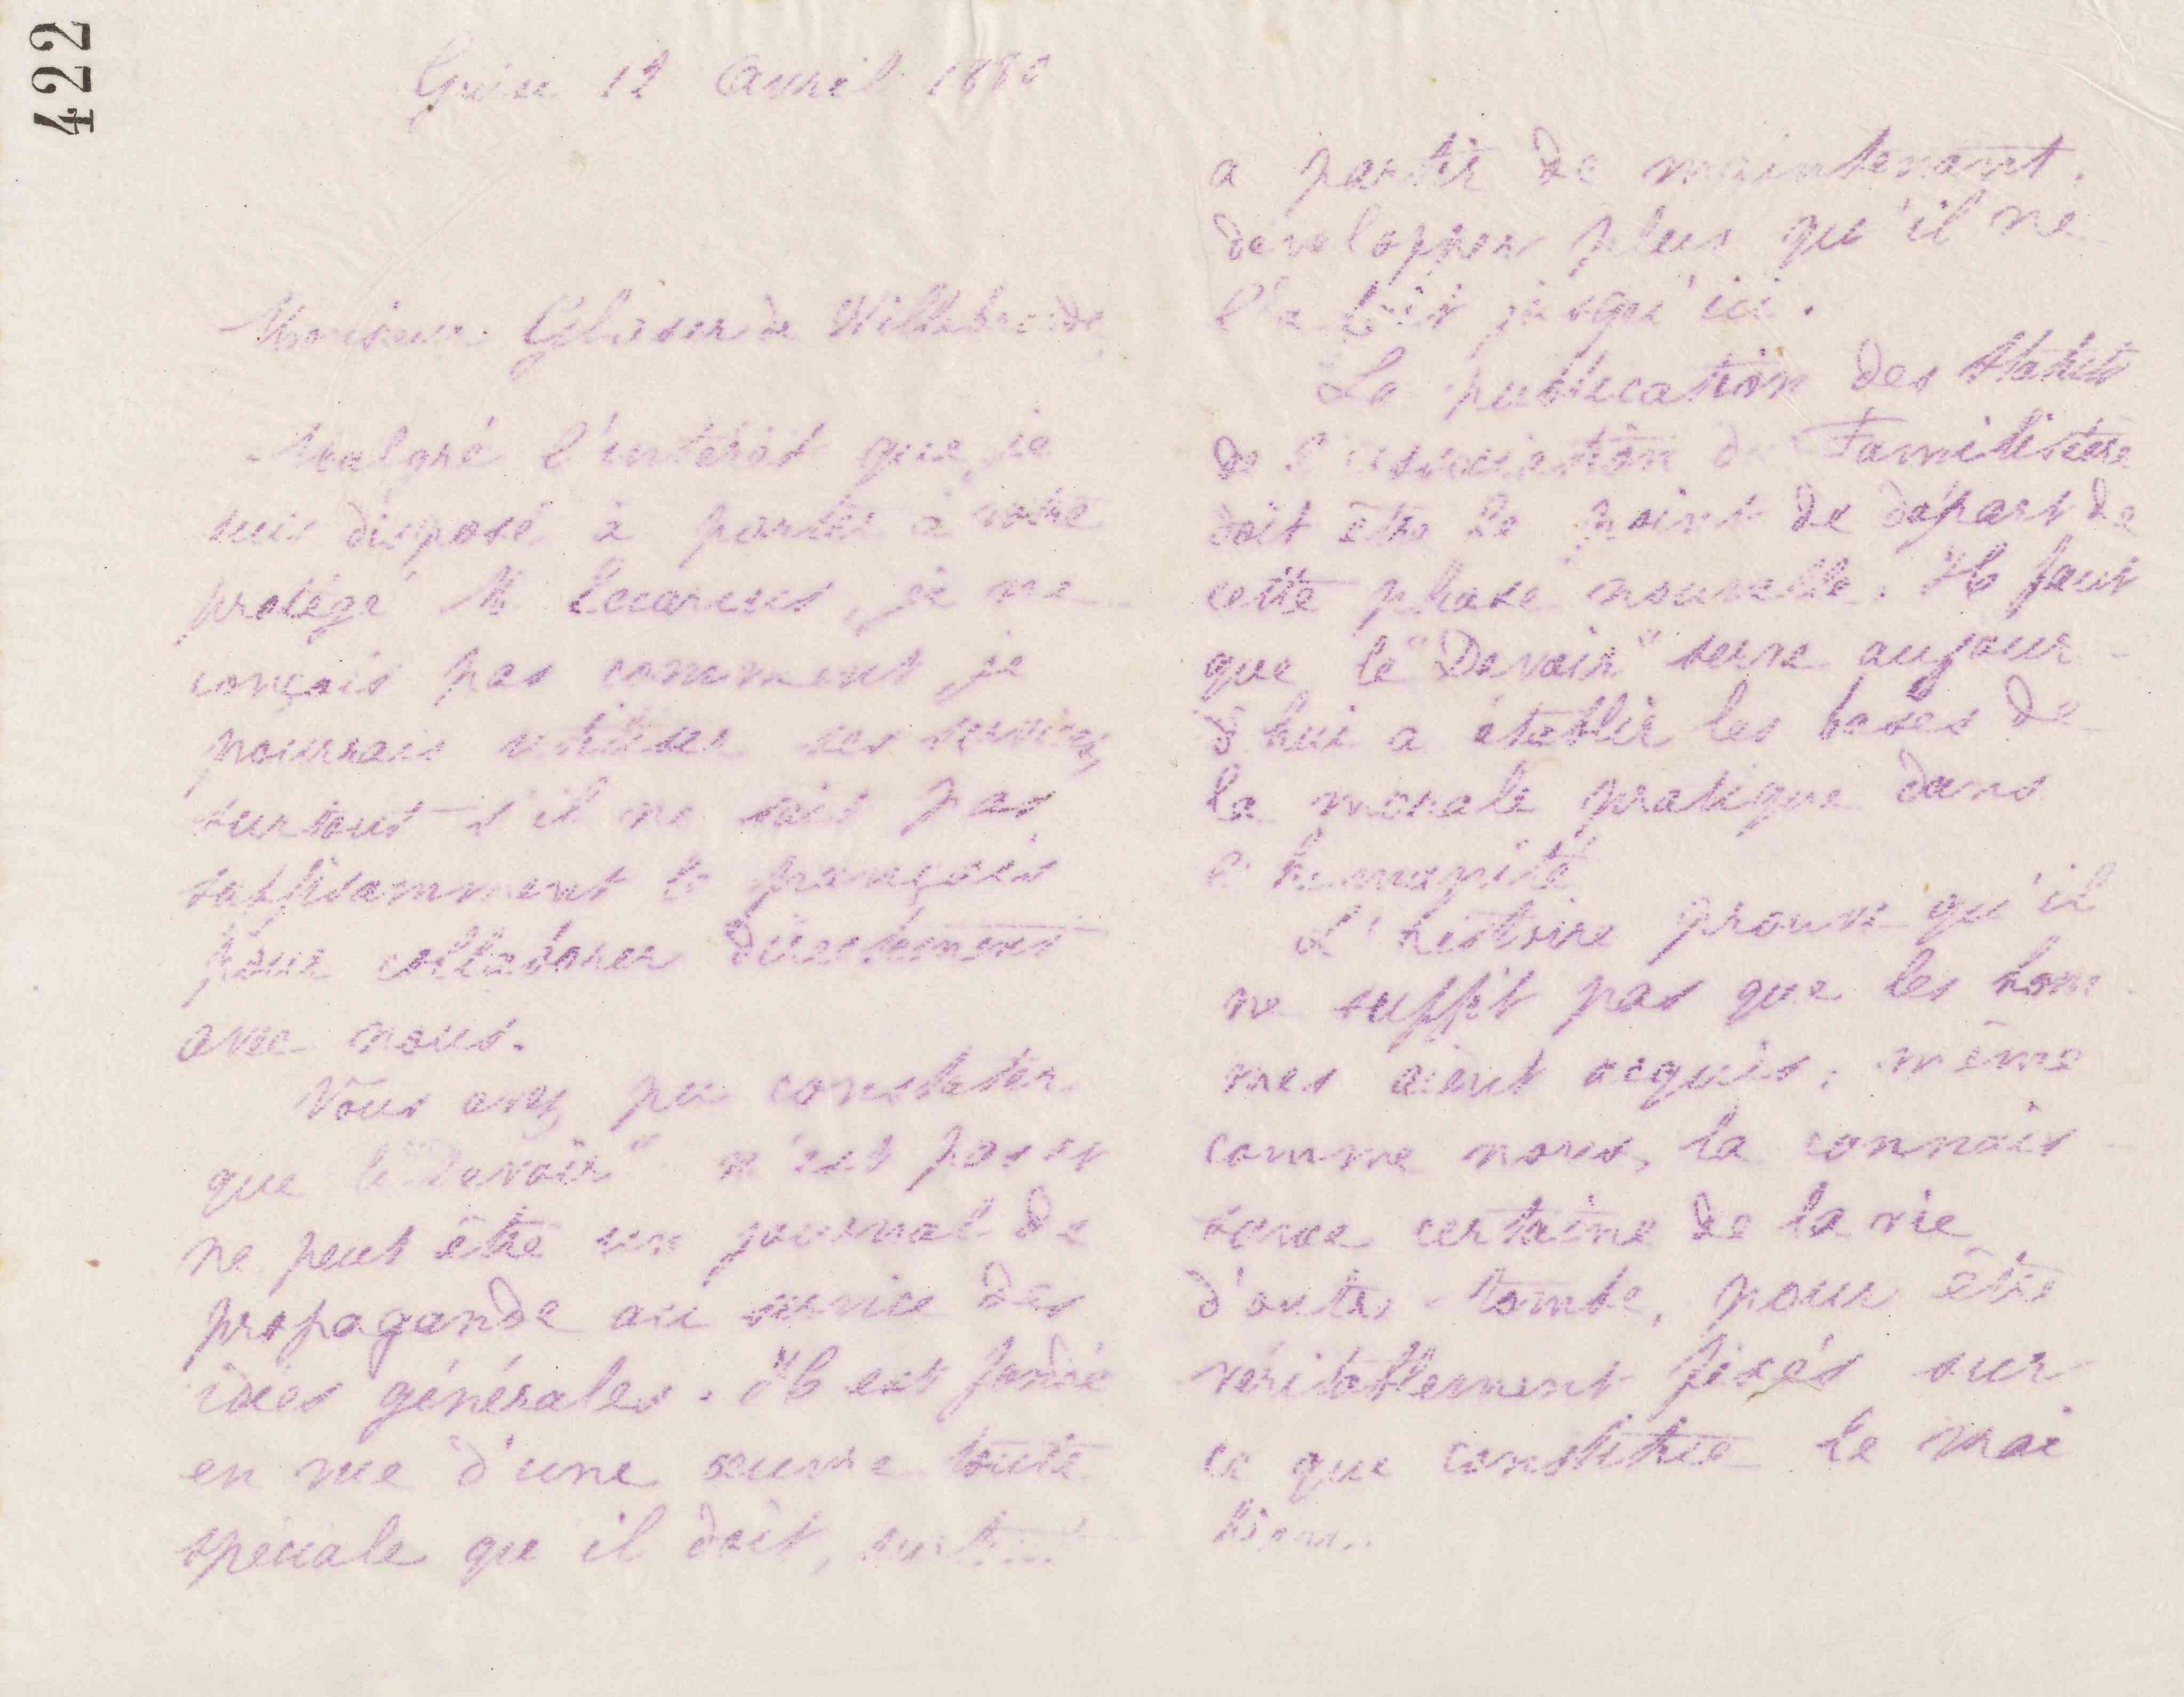 422
Guise 12 Avril 1880
Monsieur Glaser de Willebrorde
Malgré l'intérêt que je
suis disposé à porter à votre
protégé M. Eccarius, je ne
conçois pas comment je
pourrais utiliser ses services,
surtout s'il ne sait pas
suffisamment le français
pour collaborer directement
avec nous.
Vous avez pu constater
que le "Devoir" n'est pas et
ne peut être un journal de
propagande au service des
idées générales. Il est fondé
en vue d'une œuvre toute
spéciale qu'il doit, surtout
a partir de maintenant,
développer plus qu'il ne
l'a fait jusqu'ici.
La publication des statuts
de l'association du Familistère
doit être le point de départ de
cette phase nouvelle. Il faut
que le "Devoir" serve aujour-
d'hui a établir les bases de
la morale pratique dans
l'humanité
L'histoire prouve qu'il
ne suffit pas que les hom-
mes aient acquis, même
comme nous, la connais-
sance certaine de la vie
d'outre-tombe, pour être
véritablement fixés sur
ce que constitue le vrai
bien.